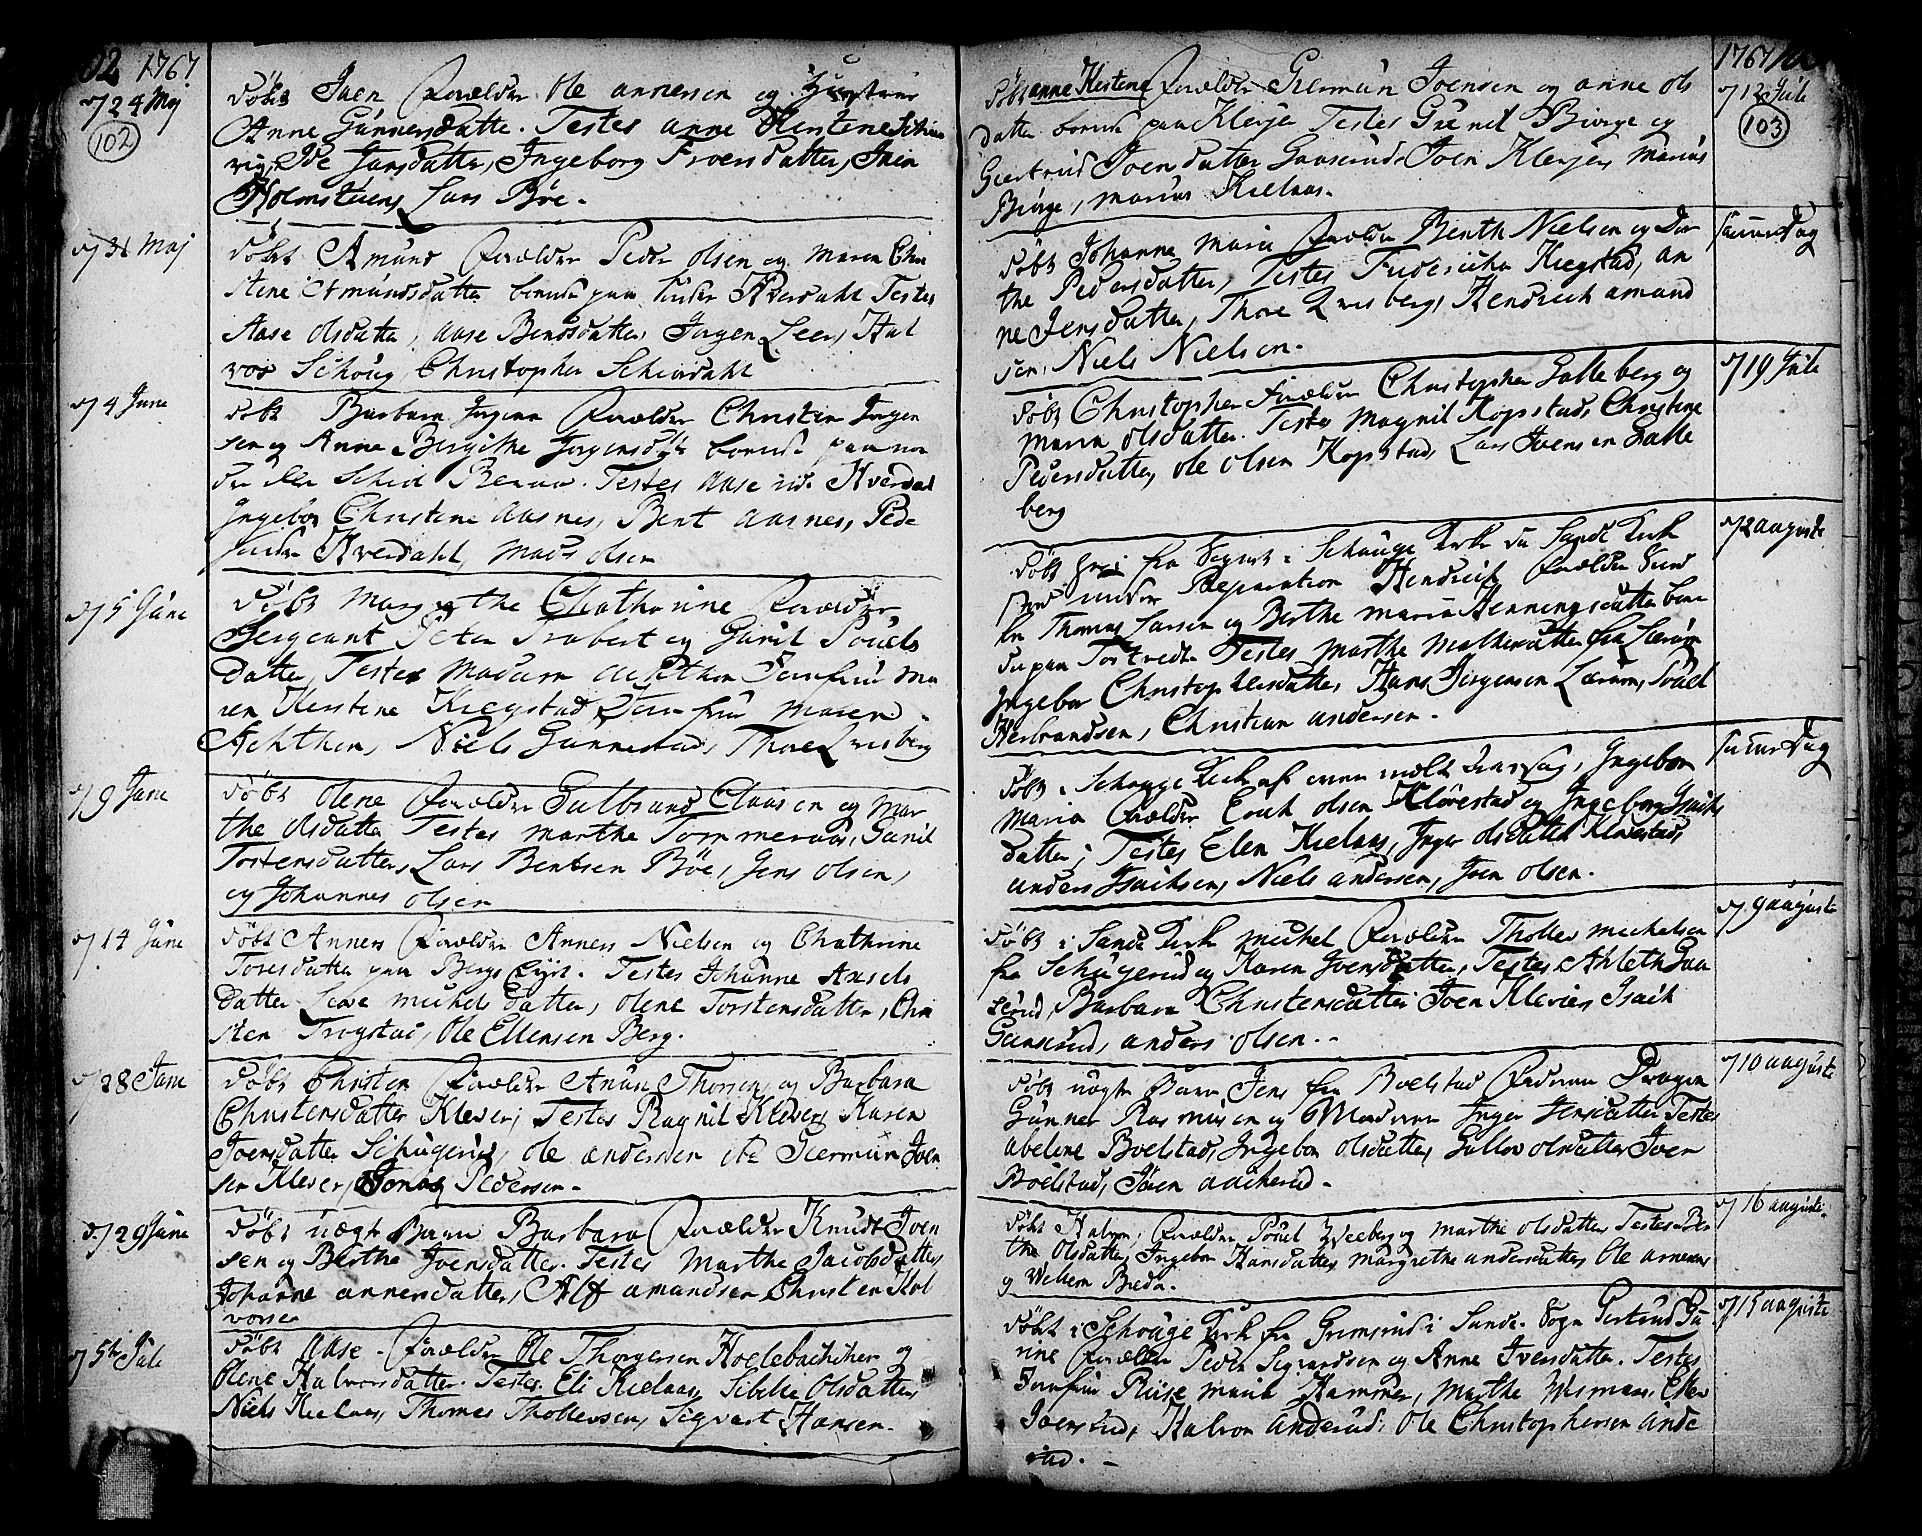 102 1767
d/ 24 Maj
102
døbt Joen Forældre Ole annersen og Hustrue
Anne Gunnersdatter. Testes anne Kerstene
Ide Jansdatter, Ingeborg Froersdatter, Joen
Holmstuen, Lars Bøe.
d/ 31 Maj
døbt Amund Forældre Peder olsen og Maren Chri
stene Amundsdatter boende paa Kverdahl Testes
Aase olsdatter, aase Bendsdatter, Jørgen Leer, Hal
vor Schoug, Christopher
d/ 4 June
døbt Barbara Forældre Christen Jørgen
sen og Anne Bergithe Jørgensdtr boende paa
Testes aase Kverdal
Ingebor Christine aasnes, Bent aasnes, Pede
Kverdahl, Mads olsen
d/ 5 June
døbt Margrethe Chathrine Forældre
Sergeant Peter Trabert og Gunil Pouels
datter, Testes Madam Achthon Jomfrue Ma
ren Kerstine Kiegstad, Jomfrue Maren
Achthen, Niels Gunnestad, Thore Qvisberg
d/ 9 June
døbt olene Forældre Gulbrand Claasen og Mar
the olsdatter Testes Marthe Tommeraas, Gunil
Torstensdatter, Lars Bentsen Bøe, Jens olsen,
og Johannes olsen
d/ 14 June
døbt Anners Forældre Anners Nielsen og Chathrine
Toresdatter paa Bergs Ejet. Testes Johanne Axels
datter Lene Michels datter, olene Torstensdatter, Chri
sten Trogstad, Ole Ellensen Berg.
d/ 28 June
døbt Christen Forældre Amun Thorsen og Barbara
Christensdatter Klever; Testes Ragnil Klever, Karen
Joensdatter Schugerud, Ole andersen Germun Joen
sen Klever, Jonas Pedersen.
d/ 29 June
døbt uægte Barn Barbara Forældre Knudt Joen
sen og Berthe Joensdatter. Testes Marthe Jacobsdatter,
Johanne annersdatter, Alf amundsen Christen Hol
vorsen
d/ 5te Jule
døbt aase. Forældre Ole Thorgersen Holebachichen og
Olene Halvorsdatter. Testes Eli Kielaas, Sibelle Olsdatter,
Niels Kielaas, Thomes Thollevsen, Sigvart Hansen.
1767
d/ 12 Jule
103
døbt anne Kerstene Forældre Germun Joensen og anne ols
datter boende paa Klever Testes Gunil Biørge og
Giertrud Joensdatter Gaaserud, Joen Klever, Marius
Biørge, Marius Kielaas.
samme Dag
døbt Johanne Maria Forældre Benth Nielsen og Dor
the Pedersdatter, Testes Frederiche Kiegstad, an
ne Jensdatter, Thore Qvisberg, Hendrich amund
sen, Niels Nielsen.
d/ 19 Jule
døbt Christopher Forældre Christopher Galleberg og
Maria olsdatter. Testes Magnil Kopstad, Christine
Pedersdatter, Ole olsen Kopstad, Lars Iversen Galle
berg
d/ 2 auguste
døbt fra Sognet i Schouge Kirke da Sande Kirke
under Reparation Hendrich Forældre
Thomas Larsen og Berthe Maria Henningsdatter boen
de paa Tortvedt Testes Marthe Mathesdatter fra Lærum
Ingebor Christophersdatter, Hans Jørgensen Lærum, Pouel
Herbrandsen, Christian andersen.
samme Dag
døbt i Schouge Kirke af Ingebor
Maria Forældre Erich olsen Kløvestad og Ingebor Isachs
datter; Testes Elen Kielaas, Inger olsdatter Kløvestad,
anders Isachsen, Niels andersen, Joen olsen.
d/ 9 auguste
døbt i Sande Kirke Michel Forældre Tholles Michelsen
fra Schugerud og Karen Joensdatter, Testes Ahleth Gaa
serud, Barbara Christensdatter Joen Klever, Isach
Gaaserud, anders olsen.
d/ 10 auguste
døbt uægte Barn Jens fra Boelstad Faderen Dragon
Gunner Rasmusen og Moderen Inger Jensdatter Testes
abelene Boelstad, Ingebor olsdatter, Gullov olsdatter Joen
Boelstad, Joen aacherud.
d/ 16 auguste.
døbt Halvor, Forældre Pouel Hveeberg og Marthe olsdatter Testes Ber
the Olsdatter, Ingebor Hansdatter, Margrethe andersdatter, Ole arnesen
og Velhem Breda.
d/ 15 auguste
døbt i Schouge Kirke fra Grimsrud i Sande Sogn Gertrud Gu
rine Forældre Peder Sigvardsen og Anne Iversdatter. Testes
Jomfrue Riise Maria Hammer, Marthe Wisman. Ellen
Joensrud, Halvor anderud, Ole Christophersen ande
rud.